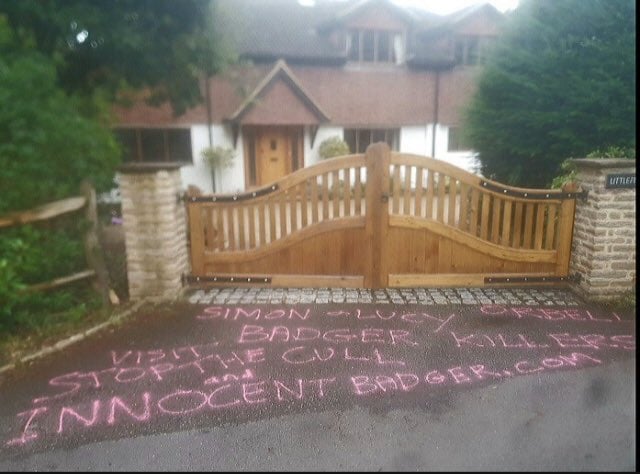 LITTLE
SIMON & LUCY ORBELL
BADGER KILLERS
VISIT
STOP THE CULL
and
INNOCENT BADGER.COM